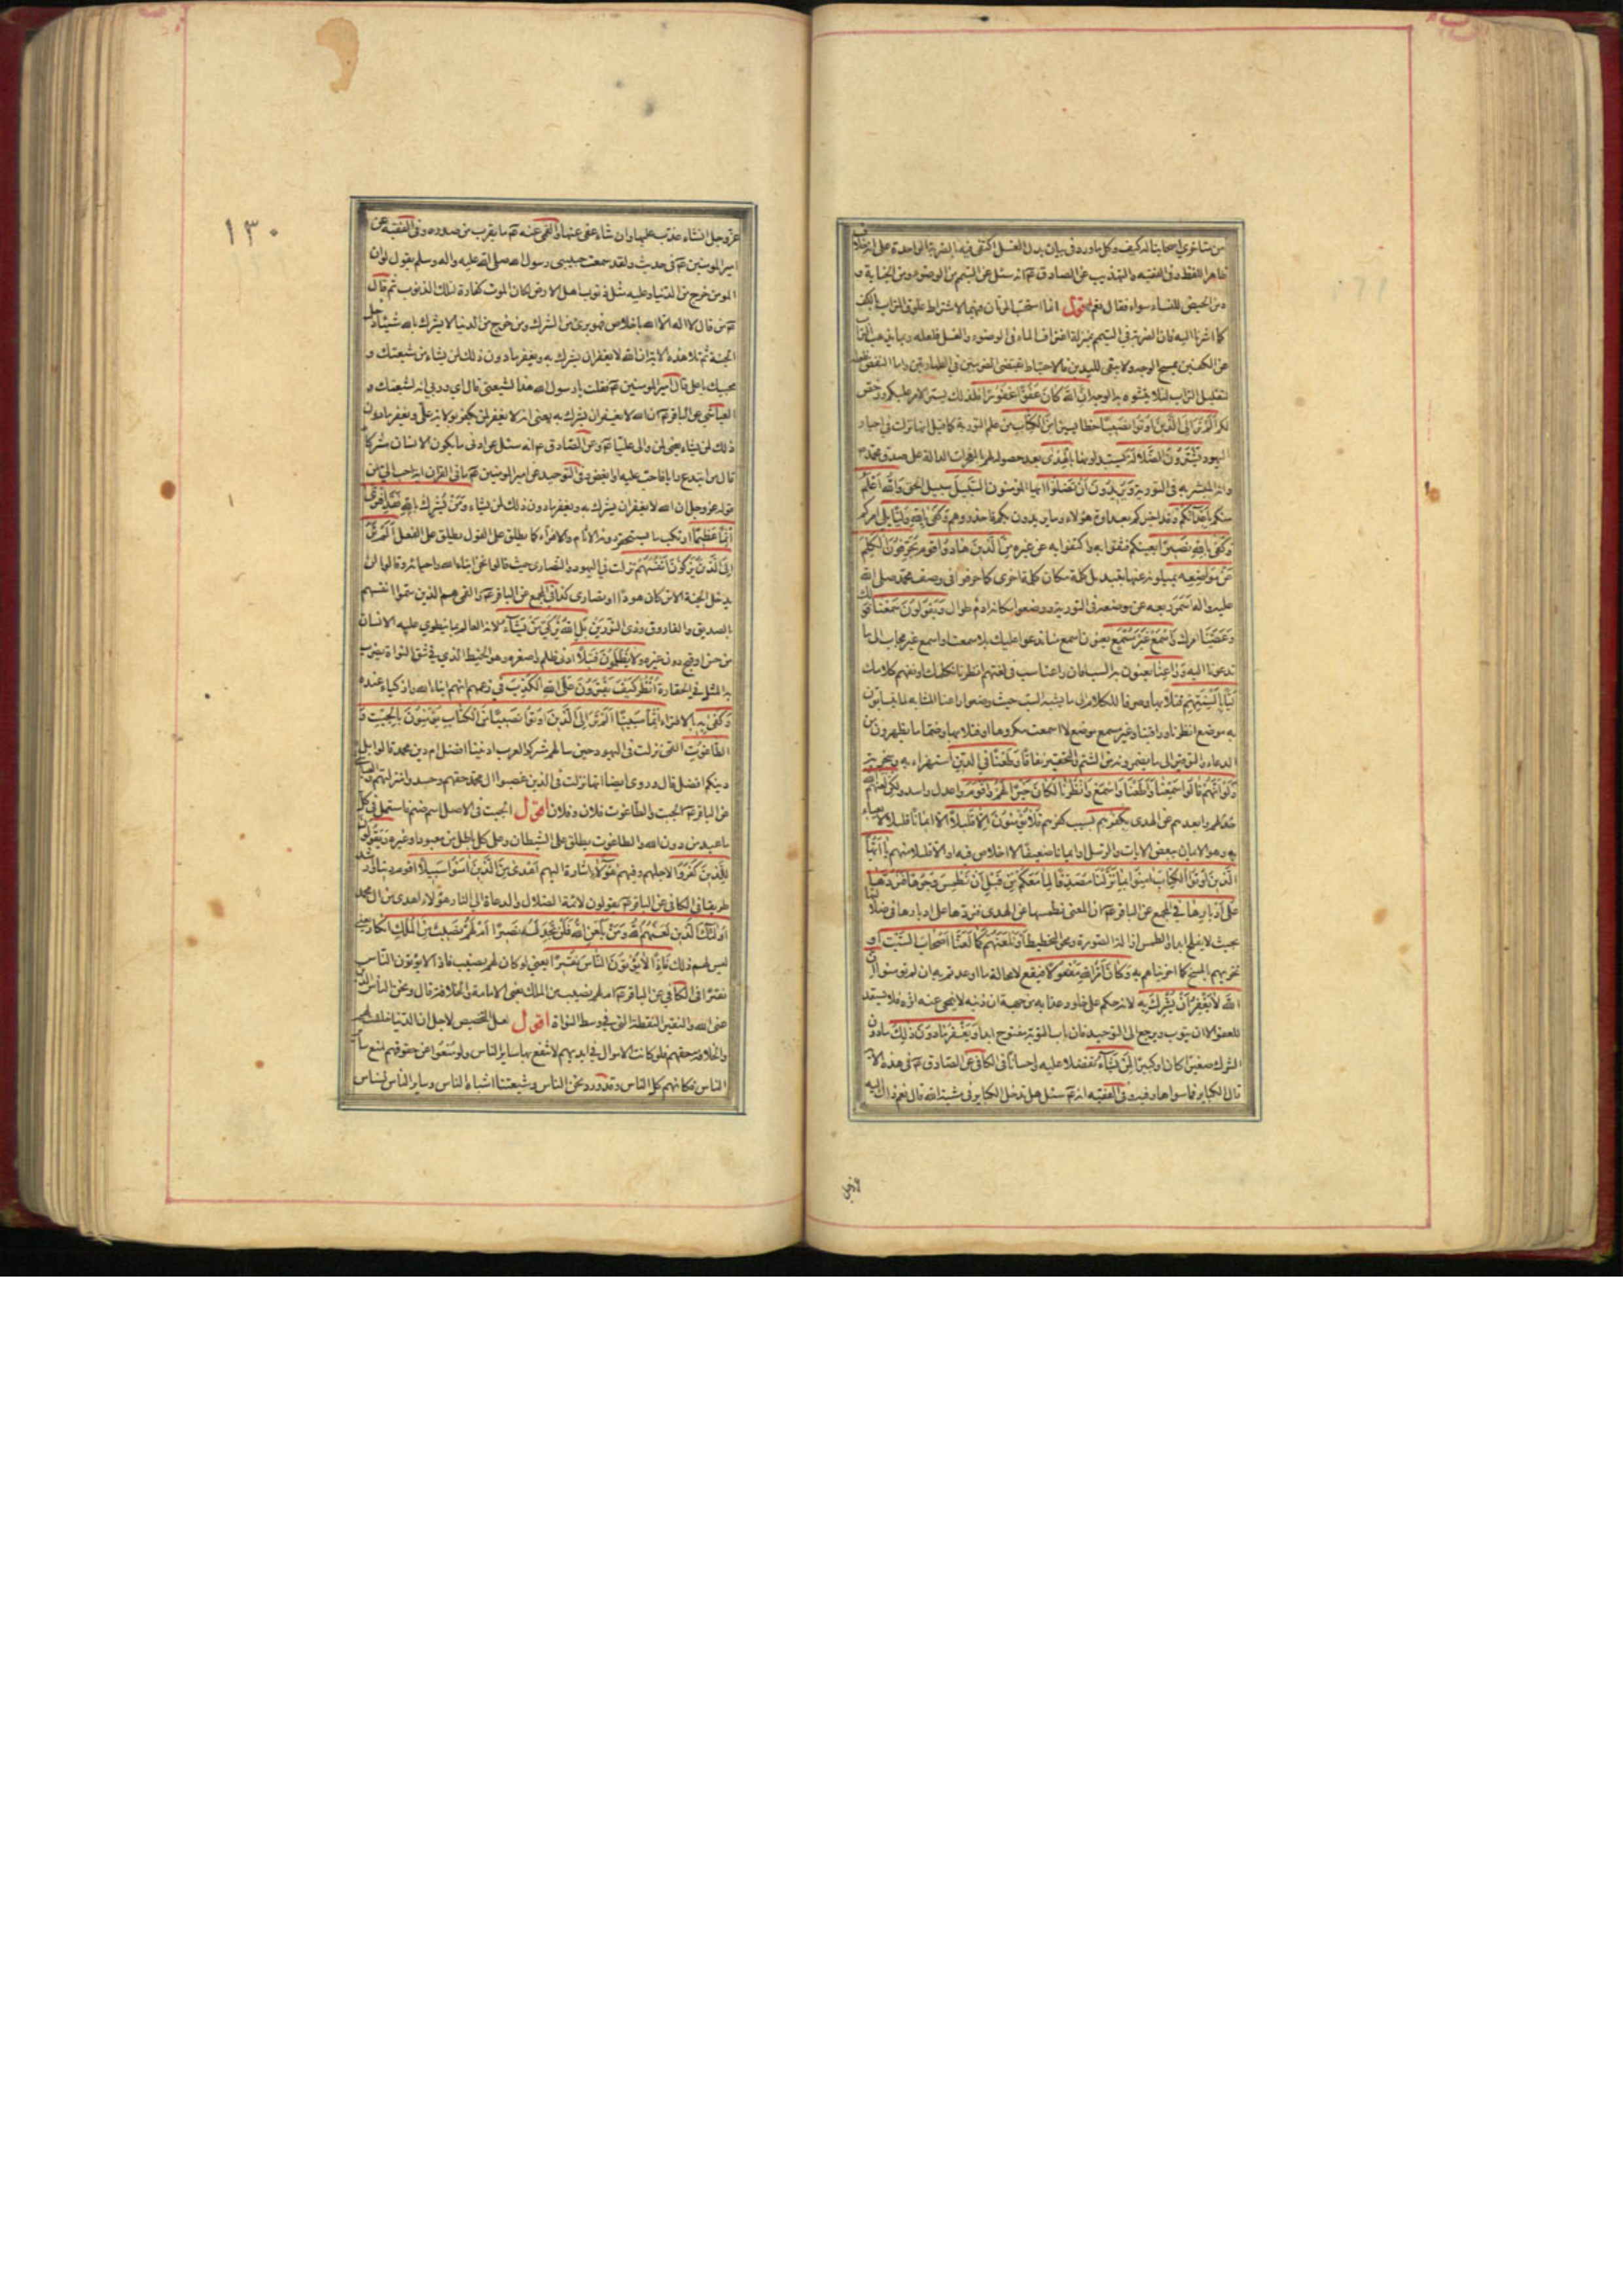 من متأخري أصحابنا له كيف وكل ما ورد في بيان بدل الغسل اكتفى فيه بالضربة الواحدة على
ظاهر اللفظ وفي الفقيه والتهذيب عن الصادق عم انه سئل عن التيمم من الوضوء ومن الجنابة و
من الحيض للنساء سواء فقال نعم اقول
كما اشرنا اليه فان الضربة في التيمم بمنزلة اغتراف الماء في الوضوء والغسل
عن الكفين بمسح الوجه ولا يبقى لليدين فالاحتياط يقتضي الضربتين في الطهارتين واما النفض
لتقليل التراب لئلا يتشوه به الوجه ان الله كان عفوا غفورا فلذلك يسر الامر عليكم ورخص
لكم الم تر الى الذين اوتوا نصيبا حظا يسيرا من الكتاب من علم التورية كما قيل انها نزلت في احبار
اليهود يشترون الضلالة يستبدلونها بالهدى بعد حصوله لهم بالمعجزات الدالة على صدق محمد ص
وانه المبشر به في التورية ويريدون ان تضلوا ايها المؤمنون السبيل سبيل الحق والله اعلم
منكم باعدائكم وقد اخبركم بعداوة هؤلاء وما يريدون بكم فاحذروهم وكفى بالله وليا يلي امركم
وكفى بالله نصيرا يعينكم فثقوا به واكتفوا به عن غيره من الذين هادوا قوم يحرفون الكلم
عن مواضعه يميلونه عنها بتبديل كلمة مكان كلمة اخرى كما حرفوا في وصف محمد صلى الله
عليه واله اسمر ربعة عن موضعه في التورية ووضعوا مكانه ادم طوال ويقولون سمعنا قولك
وعصينا امرك واسمع غير مسمع يعنون اسمع منا ندعوا عليك بلا سمعت او اسمع غير مجاب الى ما
تدعونا اليه وراعنا يعنون به السب فان راعنا سب في لغتهم انظرنا نكلمك او نفهم كلامك
ليا بالسنتهم فتلا بها وصرفا للكلام الى ما يشبه السب حيث وضعوا راعنا المشابه لما يتسابون
به موضع انظرنا وغير مسمع موضع لا اسمعت مكروها او فتلا بها وضما ما يظهرون من
الدعاء والتوقير الى ما يضمرونه من الشتم والتحقير نفاقا وطعنا في الدين استهزاء به وسخرية
ولو انهم قالوا سمعنا واطعنا واسمع وانظرنا لكان خيرا لهم واقوم واعدل واسد ولكن لعنهم الله
خذلهم وابعدهم عن الهدى بكفرهم بسبب كفرهم فلا يؤمنون الا قليلا الا ايمانا قليلا لا يعبأ
به وهو الايمان ببعض الايات والرسل او ايمانا ضعيفا لا اخلاص فيه او الا قليلا منهم يا ايها
الذين اوتوا الكتاب امنوا بما نزلنا مصدقا لما معكم من قبل ان نطمس وجوها فنردها
على ادبارها في المجمع عن الباقر عم ان المعنى نطمسها عن الهدى فنردها على ادبارها في ضلالتها
بحيث لا يفلح ابدا والطمس ازالة الصورة ومحو التخطيط او نلعنهم كما لعنا اصحاب السبت او
نخزيهم بالمسخ كما اخزيناهم به وكان امر الله مفعولا فيقع لا محالة ما اوعدتم به ان لم تؤمنوا ان
الله لا يغفر ان يشرك به لانه حكم على خلود عذابه من جهة ان ذنبه لا ينمحي عنه اثره فلا يستعد
للعفو الا ان يتوب ويرجع الى التوحيد فان باب التوبة مفتوح ابدا ويغفر ما دون ذلك ما دون
الشرك صغيرا كان او كبيرا لمن يشاء تفضلا عليه واحسانا في الكافي عن الصادق عم في هذه الاية
قال الكباير فما سواها وفيه وفي الفقيه انه عم سئل هل تدخل الكباير في مشية الله قال نعم ذاك اليه
عز وجل
١٣٠
عز وجل ان شاء عذب عليها وان شاء عفى عنها والقمي عنه عم ما يقرب من صدره وفي الفقيه عن
امير المومنين عم في حديث ولقد سمعت حبيبي رسول الله صلى الله عليه واله وسلم يقول لو ان
المومن خرج من الدنيا وعليه مثل ذنوب اهل الارض لكان الموت كفارة لتلك الذنوب ثم قال
عم من قال لا اله الا الله باخلاص فهو بريء من الشرك ومن خرج من الدنيا لا يشرك بالله شيئا دخل
الجنة ثم تلا هذه الاية ان الله لا يغفر ان يشرك به ويغفر ما دون ذلك لمن يشاء من شيعتك و
محبيك يا علي قال امير المومنين عم فقلت يا رسول الله هذا لشيعتي قال اي وربي انه لشيعتك و
العياشي عن الباقر عم ان الله لا يغفر ان يشرك به يعني انه لا يغفر لمن يكفر بولاية علي ويغفر ما دون
ذلك لمن يشاء يعني لمن والى عليا عم وعن الصادق عم انه سئل عن ادنى ما يكون الانسان مشركا
قال من ابتدع رايا فاحب عليه او ابغض وفي التوحيد عن امير المومنين عم ما في القران اية احب الي من
قوله عز وجل ان الله لا يغفر ان يشرك به ويغفر ما دون ذلك لمن يشاء ومن يشرك بالله فقد افترى
اثما عظيما ارتكب ما يستحقر دونه الاثام والافتراء كما يطلق على القول يطلق على الفعل الم تر
الى الذين يزكون انفسهم نزلت في اليهود والنصارى حيث قالوا نحن ابناء الله واحباؤه وقالوا لن
يدخل الجنة الا من كان هودا او نصارى كذا في المجمع عن الباقر عم والقمي هم الذين سموا انفسهم
بالصديق والفاروق وذي النورين بل الله يزكي من يشاء لانه العالم بما ينطوي عليه الانسان
من حسن او قبح دون غيره ولا يظلمون فتيلا ادنى ظلم واصغره وهو الخيط الذي في شق النواة يضرب
به المثل في الحقارة انظر كيف يفترون على الله الكذب في زعمهم انهم ابناء الله وازكياء عنده
وكفى به بالافتراء اثما مبينا الم تر الى الذين اوتوا نصيبا من الكتاب يؤمنون بالجبت و
الطاغوت القمي نزلت في اليهود حين سالهم مشركوا العرب اديننا افضل ام دين محمد قالوا بل
دينكم افضل قال وروي ايضا انها نزلت في الذين غصبوا ال محمد حقهم وحسدوا منزلتهم
عن الباقر عم الجبت والطاغوت فلان وفلان اقول الجبت في الاصل اسم صنم فاستعمل في كل
ما عبد من دون الله والطاغوت يطلق على الشيطان وعلى كل باطل من معبود او غيره ويقولون
للذين كفروا لاجلهم وفيهم هؤلاء اشارة اليهم اهدى من الذين امنوا سبيلا اقوم دينا وارشد
طريقا في الكافي عن الباقر عم يقولون لائمة الضلال والدعاة الى النار هؤلاء اهدى من ال محمد
اولئك الذين لعنهم الله ومن يلعن الله فلن تجد له نصيرا ام لهم نصيب من الملك انكار يعني
ليس لهم ذلك فاذا لا يؤتون الناس نقيرا يعني لو كان لهم نصيب فاذا لا يؤتون الناس
نقيرا في الكافي عن الباقر عم ام لهم نصيب من الملك يعني الامامة والخلافة قال ونحن الناس الذين
عنى الله والنقير النقطة التي في وسط النواة اقول لعل التخصيص لاجل ان الدنيا خلقت لهم
والخلافة حقهم فلو كانت الاموال في ايديهم لانتفع بها ساير الناس ولو منعوا عن حقوقهم لمنع ساير
الناس فكانهم كل الناس وقد ورد نحن الناس وشيعتنا اشباه الناس وساير الناس نسناس